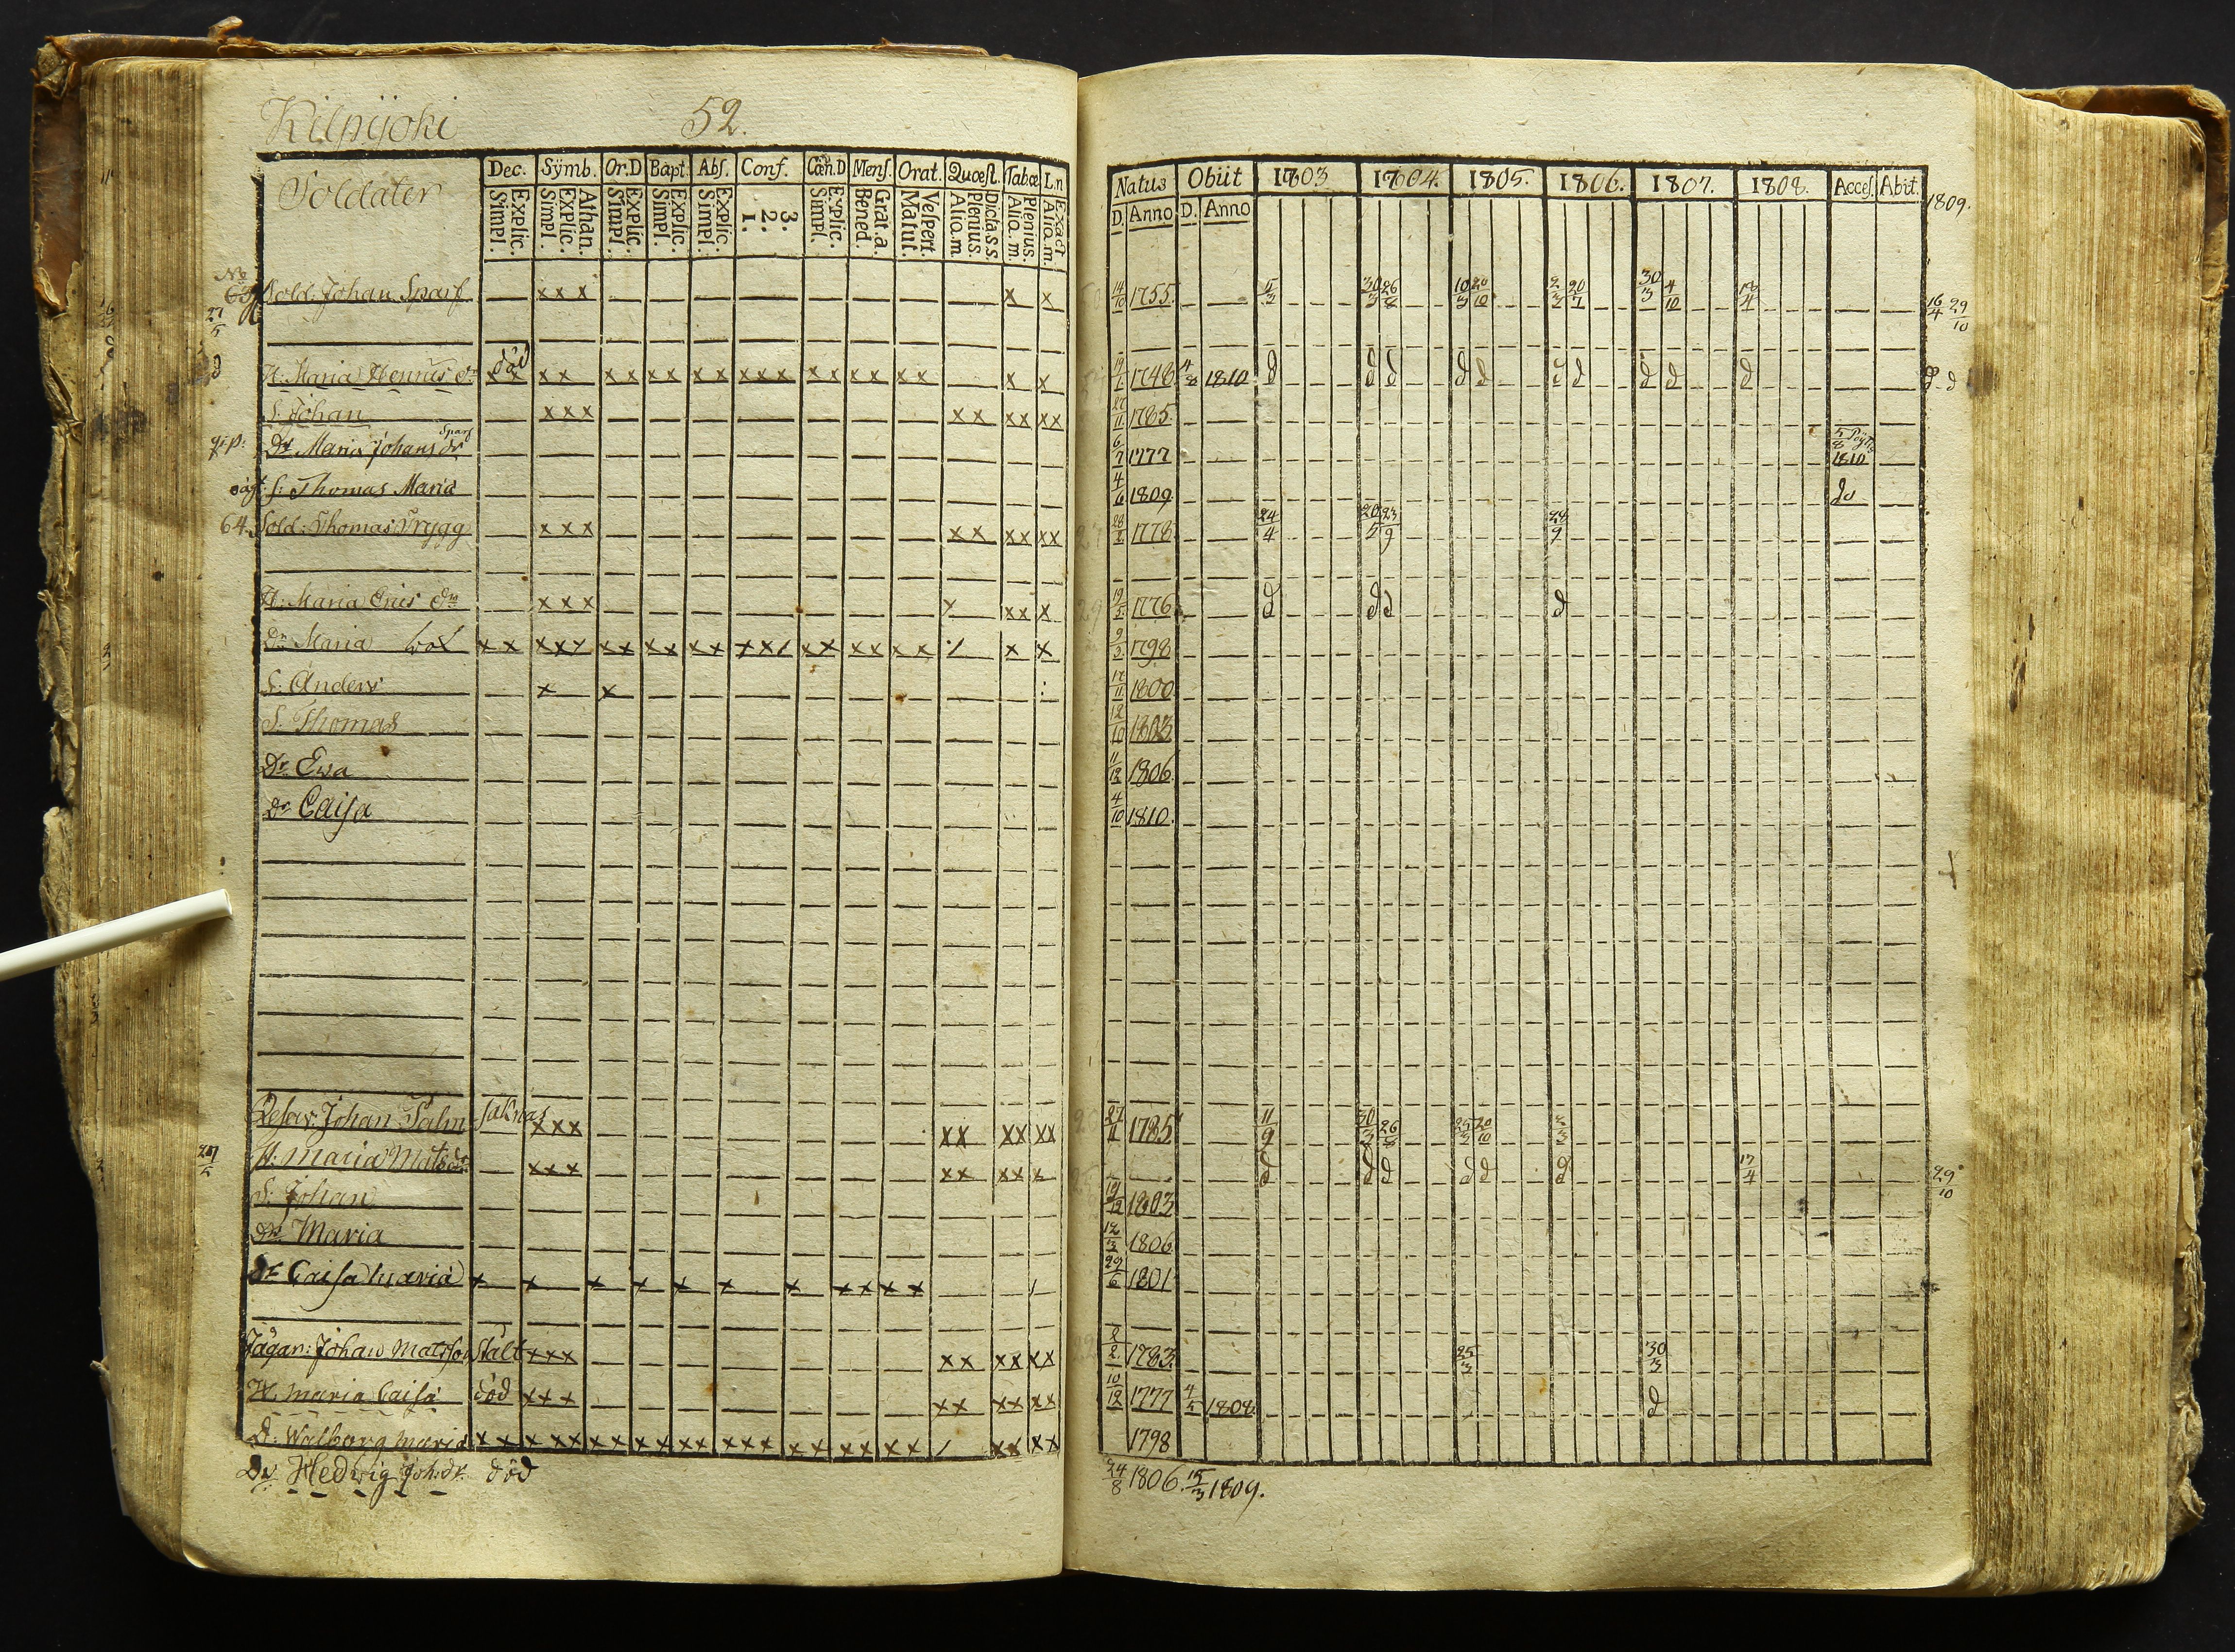 Kilpijoki 52.
Soldater
Dec. Symb. Or.D Bapt. Abs. Conf. Cœn.D Mens. Orat. Quæst. Tabæ L.n.
Explic. Simpl. Athan. Explic. Simpl. Explic. Simpl. Explic. Simpl. Explic. Simpl. 3. 2. 1. Explic. Simpl. Grat.a. Bened. Vespert. Matut. Dicta s.s. Plenius. Aliq.m. Plenius. Aliq.m. Exact Aliq.m.
No 63 Sold. Johan Sparf x x x x x
27/5
H: Maria Henrics dr död x x x x x x x x x x x x x x x x x x x x x
S: Johan x x x x x x x x x
gift: Dr Maria Johans dr Sparf
oägt: S: Thomas Maria
64. Sold: Thomas Trygg x x x x x x x x x
H: Maria Erics dr x x x x x x x
Dr Maria x x x x x x x x x x x x x x x x x x x x x
S: Anders x x
S. Thomas
Dr. Ewa
Dr Caisa
Johan Palm saknas x x x x x x x x x
27/5 H: Maria Mats dr x x x x x x x x
S. Johan
Dr Maria
Dr Caisa Maria x x x x x x x x x x x
Jägar: Johan Matsson Stålt x x x x x x x x x
H. Maria Caisa död x x x x x x x x x
D: Walborg Maria x x x x x x x x x x x x x x x x x x x x x x x x
Dr Hedwig Joh: dr död
Natus Obiit 1803 1804. 1805. 1806. 1807. 1808. Acces. Abit. 1809.
D. Anno D. Anno
14/10 1755 5/3 30/3 26/8 10/3 20/10 2/3 20/7 30/3 4/10 18/4 16/4 29/10
1748 4/8 1810 d d d d d d d d d d d d
27/11 1785.
6/7 1777 1810
4/6 1809 do
28/8 1778 24/4 20/5 23/9 28/9
19/5 1776 d d d d
9/2 1798
1800
12/10 1803
11/12 1806
4/10 1810.
27/11 1785 11/9 30/3 26/8 25/3 20/10 2/3
d d d d d d 17/4 29/10
19/12 1803
12/3 1806
29/6 1801
8/2 1783 25/3 30/3
10/12 1777 4/5 1808 d
1798
24/8 1806. 15/3 1809.